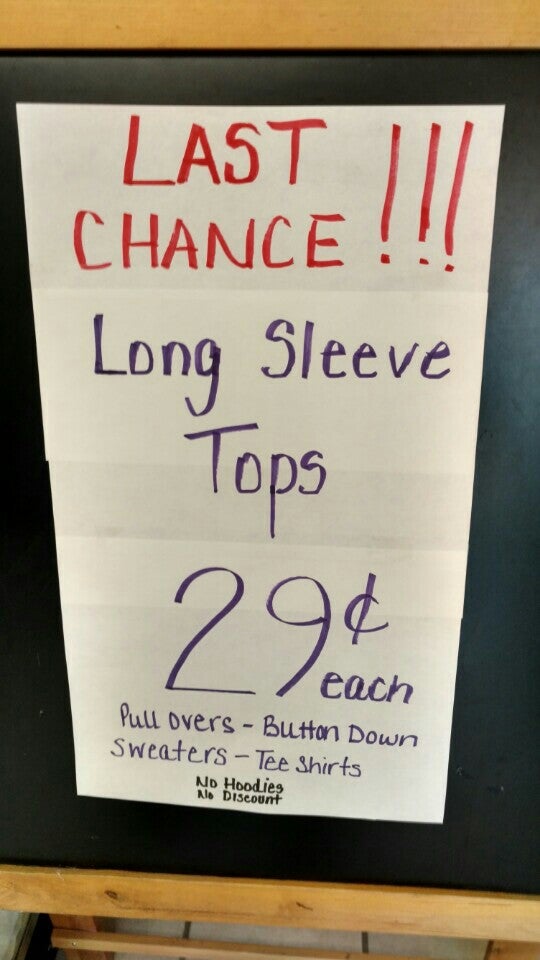 LAST
CHANCE !!!
Long Sleeve
Tops
29¢ each
Pull overs - Button Down
Sweaters - Tee Shirts
No Hoodies
No Discount